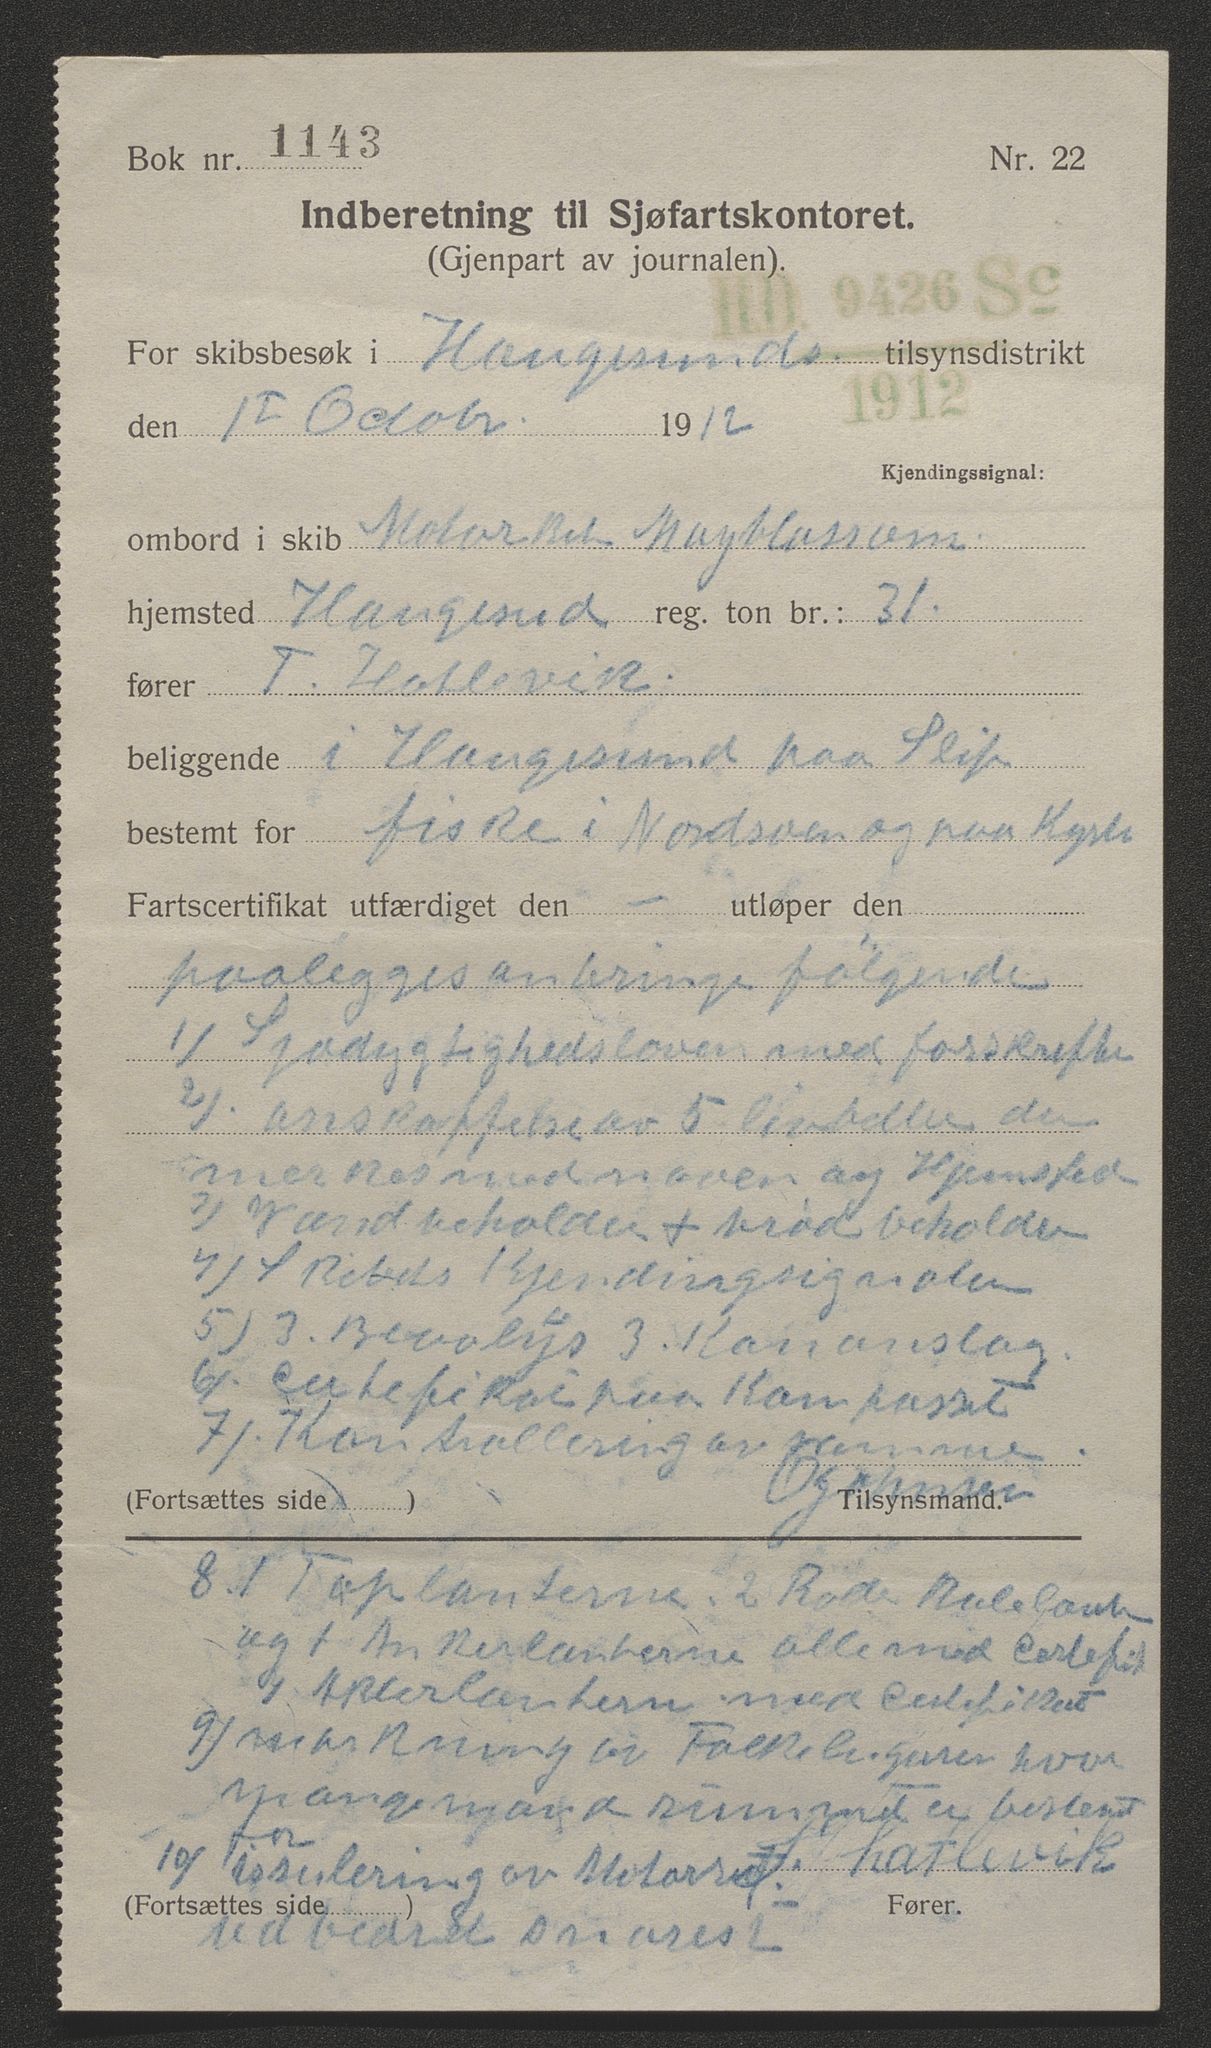 Bok nr. 1143 Nr. 22
Indberetning til Sjøfartskontoret.
(Gjenpart av journalen).
H.D. 9426 Sc
1912
For skibsbesøk i Haugesunds tilsynsdistrikt
den 1st Octobr. 1912
Kjendingssignal:
ombord i skib Motorskt Mayblossom
hjemsted Haugesund reg. ton br.: 31.
fører T. Hatlevik.
beliggende i Haugesund paa Slip
bestemt for fiske i Nordsøen og paa Kysten
Fartscertifikat utfærdiget den – utløper den
paalegges anbringe følgende
1) Sjødygtighedsloven med forskrifter
2). anskaffelse av 5 livbelter der
merkes med navn og Hjemsted
3) Vandbeholder + brød beholder
4) Skibets Kjendingsignaler
5) 3. Blaalys 3. Kanonslag.
6). Certefikat paa Kompasset
7). Kontrollering av samme.
(Fortsættes side ) Tilsynsmand.
8. 1 Toplanterne. 2 Røde Kulelant
og 1 Ankerlanterne alle med Certefik
1 Akterlantern med Certefikat
9) merkning av Folkelugaren hvor
mange mand rummet er bestemt
for
10) issulering av Motorrø T. Hatlevik
(Fortsættes side ) Fører.
Udbedret snarest